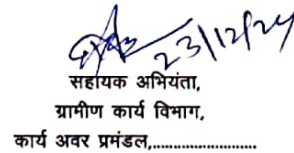 23/12/24
सहायक अभियंता,
ग्रामीण कार्य विभाग,
कार्य अवर प्रमंडल,........................